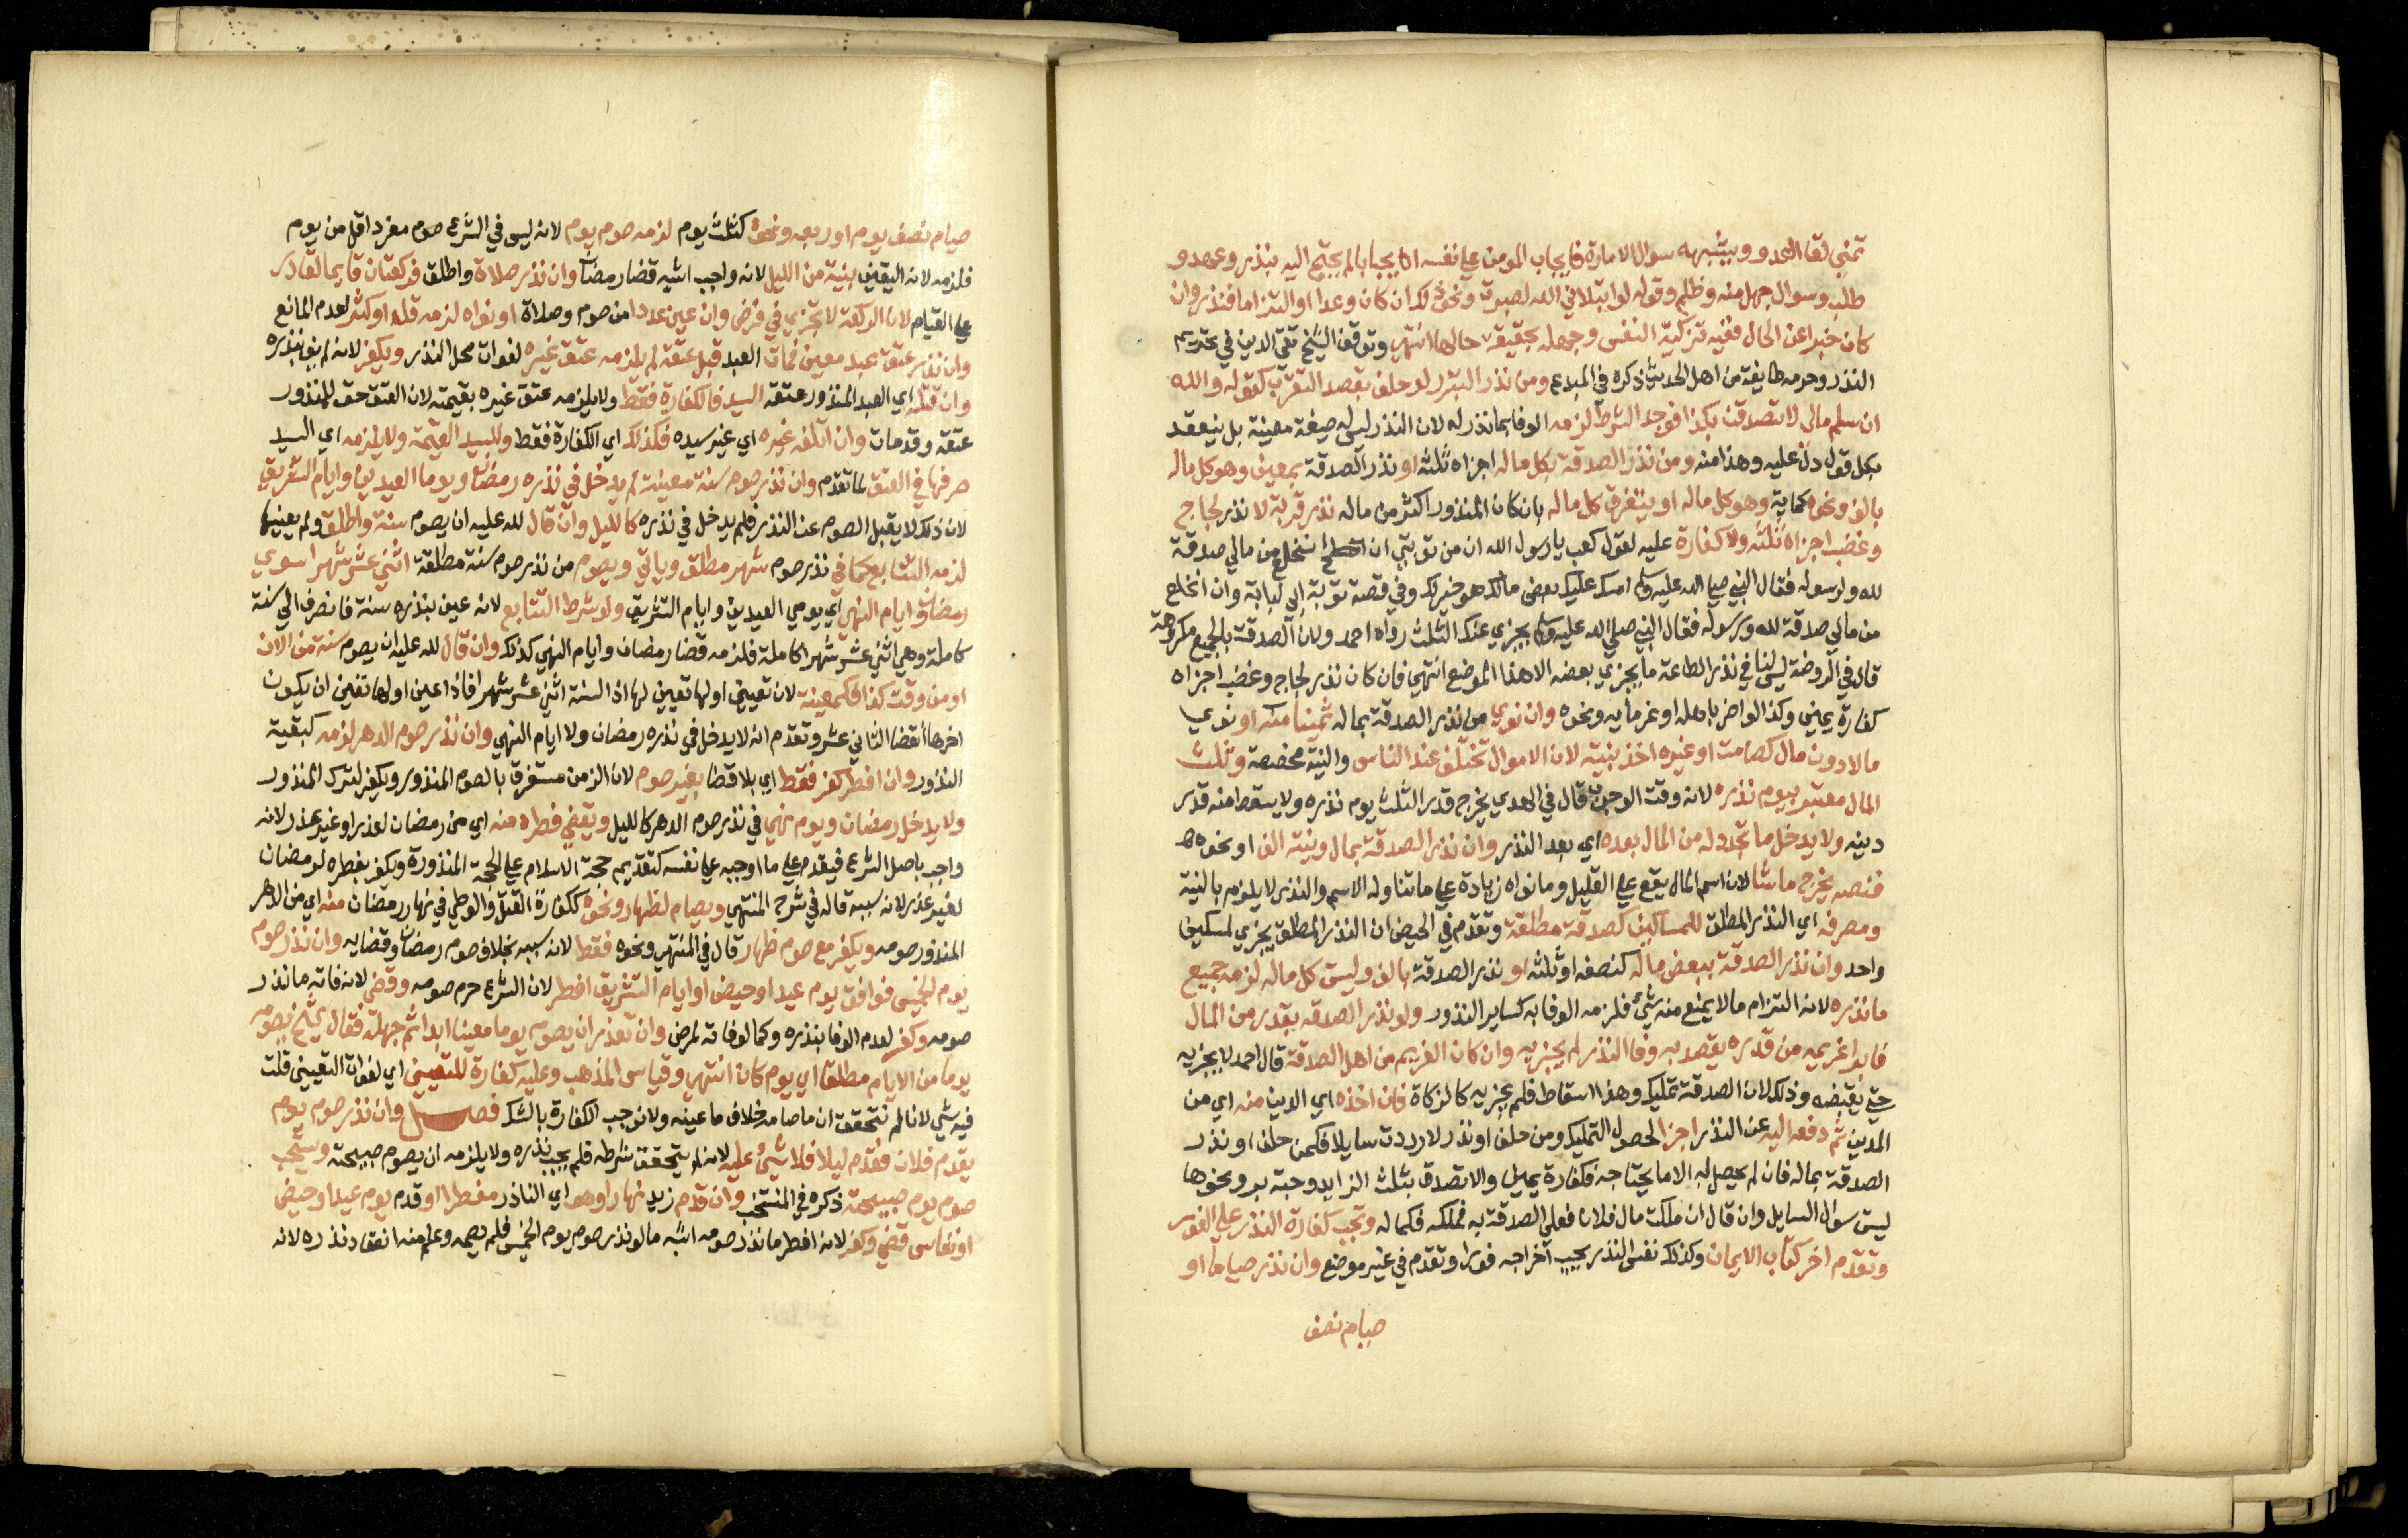 تمني لقا العدو ويشبهه سوال الامارة فايجاب المومن علي نفسه ايجابا لم يحتج اليه بنذر وعهد و
طلب وسوال جهل منه وظلم وقوله لو ابتلاني الله لصبرت ونحو ذلك ان كان وعدا او التزاما فنذر وان
كان خبرا عن الحال ففيه تزكية النفس وجهله بحقيقة حالها انتهي وتوقف الشيخ تقي الدين في تحريم
النذر وحرمه طايفة من اهل الحديث ذكره في المبدع ومن نذر التبرر لو حلف بقصد التقرب كقوله والله
ان سلم مالي لاتصدقن بكذا فوجد الشرط لزمه الوفا بما نذر له لان النذر ليس له صيغة معينة بل ينعقد
بكل قول دل عليه وهذا منه ومن نذر الصدقة بكل ماله اجزاه ثلثه او نذر الصدقة بمعين وهو كل ماله
بالف ونحوه كماية وهو كل ماله او يستغرق كل ماله بان كان المنذور اكثر من ماله نذر قربة لا نذر لجاج
وغضب اجزاه ثلثه ولا كفارة عليه لقول كعب يارسول الله ان من توبتي ان انخلع من مالي صدقة
لله ولرسوله فقال النبي صلي الله عليه وسلم امسك عليك بعض مالك هو خير لك وفي قصة توبة ابي لبابة وان انخلع
من مالي صدقة لله ورسوله فقال النبي صلي الله عليه وسلم يجزي عنك الثلث رواه احمد ولان الصدقة بالجميع مكروهة
قال في الروضة ليس لنا في نذر الطاعة ما يجزي بعضه الا هذا الموضع انتهي فان كان نذر لجاج وغضب اجزاه
كفارة يمين وكذا لو اضر باهله او غرمايه ونحوه وان نوي من نذر الصدقة بماله ثمينا منه او نوي
مالا دون مال كصامت او غيره اخذ بنيته لان الاموال تختلف عند الناس والنية مخصصة وثلث
المال معتبر بيوم نذره لانه وقت الوجوب قال في الهدي يخرج قدر الثلث يوم نذره ولا يسقط منه قدر
دينه ولا يدخل ما تجدد له من المال بعده اي بعد النذر وان نذر الصدقة بمال ونيته الف او نحوه
فنصه يخرج ما شا لان اسم المال يقع علي القليل وما نواه زيادة علي ما تناوله الاسم والنذر لا يلزم بالنية
ومصرفه اي النذر المطلق للمساكين كصدقة مطلقة وتقدم في الحيض ان النذر المطلق يجزي لمسكين
واحد وان نذر الصدقة ببعض ماله كنصفه او ثلثه او نذر الصدقة بالف وليس كل ماله لزمه جميع
ما نذره لانه التزام ما لا يمنع منه شيء فلزمه الوفا به كساير النذور ولو نذر الصدقة بقدر من المال
فابرا غريمه من قدره يقصد به وفا النذر لم يجزيه وان كان الغريم من اهل الصدقة قال احمد لا يجزيه
حتي يقبضه وذلك لان الصدقة تمليك وهذا اسقاط فلم يجزيه كالزكاة فان اخذه اي الدين منه اي من
المدين ثم دفعه اليه عن النذر اجزا لحصول التمليك ومن حلف او نذر لا رددت سايلا فكمن حلف او نذر
الصدقة بماله فان لم يحصل له الا ما يحتاجه فكفارة يمين والا تصدق بثلث الزايد وحبة بر ونحوها
ليست سوال السايل وان قال ان ملكت مال فلان فعلي الصدقة به فملكه فكماله وتجب كفارة النذر علي الفور
وتقدم اخر كتاب الايمان وكذلك نفس النذر يجب اخراجه فورا وتقدم في غير موضع وان نذر صياما او
صيام نصف
صيام نصف يوم او ربعه ونحوه كثلث يوم لزمه صوم يوم لانه ليس في الشرع صوم مفرد اقل من يوم
فلزمه لانه اليقين بنية من الليل لانه واجب اشبه قضا رمضان وان نذر صلاة واطلق فركعتان قايما لقادر
علي القيام لان الركعة لا تجزي في فرض وان عين عددا من صوم وصلاة او نواه لزمه قل او كثر لعدم المانع
وان نذر عتق عبد معين فمات العبد قبل عتقه لم يلزمه عتق غيره لفوات محل النذر ويكفر لانه لم يف بنذره
وان قتله اي العبد المنذور عتقه السيد فالكفارة فقط ولا يلزمه عتق غيره بقيمته لان العتق حق للمنذور
عتقه وقد مات وان اتلفه غيره اي غير سيده فكذلك اي الكفارة فقط وللسيد القيمة ولا يلزمه اي السيد
صرفها في العتق لما تقدم وان نذر صوم سنة معينة لم يدخل في نذره رمضان ويوما العيدين وايام التشريق
لان ذلك لا يقبل الصوم عن النذر فلم يدخل في نذره كالليل وان قال لله عليه ان يصوم سنة واطلق ولم يعينها
لزمه التتابع كما في نذر صوم شهر مطلق وياتي ويصوم من نذر صوم سنة مطلقة اثني عشر شهرا سوي
رمضان وايام النهي اي يومي العيدين وايام التشريق ولو شرط التتابع لانه عين بنذره سنة فانصرف الي سنة
كاملة وهي اثني عشر شهرا كاملة فلزمه قضا رمضان وايام النهي كذلك وان قال لله عليه ان يصوم سنة من الان
او من وقت كذا فكمعينة لان تعيين اولها تعيين لها اذ السنة اثني عشر شهرا فاذا عين اولها تعين ان يكون
اخرها انقضا الثاني عشر وتقدم انه لا يدخل في نذره رمضان ولا ايام النهي وان نذر صوم الدهر لزمه كبقية
النذور وان افطر كفر فقط اي بلا قضا بغير صوم لان الزمن مستغرق بالصوم المنذور ويكفر لترك المنذور
ولا يدخل رمضان ويوم نهي في نذر صوم الدهر كالليل ويقضي فطره منه اي من رمضان لعذر او غير عذر لانه
واجب باصل الشرع فيقدم علي ما اوجبه علي نفسه كتقديم حجة الاسلام علي الحجة المنذورة ويكفر بفطره لرمضان
لغير عذر لانه سببه قاله في شرح المنتهي ويصام لظهار ونحوه ككفارة القتل والوطي في نهار رمضان منه اي من الدهر
المنذور صومه ويكفر مع صوم ظهار قال في المنتهي ونحوه فقط لانه سببه بخلاف صوم رمضان وقضايه وان نذر صوم
يوم الخميس فوافق يوم عيد او حيض او ايام التشريق افطر لان الشرع حرم صومه وقضي لانه فاته ما نذر
صومه وكفر لعدم الوفا بنذره وكما لو فاته لمرض وان نذر ان يصوم يوما معينا ابدا ثم جهله فقال الشيخ يصوم
يوما من الايام مطلقا اي يوم كان انتهي وقياس المذهب وعليه كفارة للتعيين اي لفوات التعيين قلت
فيه شي لانا لم نتحقق ان ما صامه خلاف ما عينه ولا نوجب الكفارة بالشك فصل وان نذر صوم يوم
يقدم فلان فقدم ليلا فلا شيء عليه لانه لم يتحقق شرطه فلم يجب نذره ولا يلزمه ان يصوم صبيحته ويستحب
صوم يوم صبيحته ذكره في المنتخب وان قدم زيد نهارا وهو اي الناذر مفطرا او قدم يوم عيد او حيض
او نفاس قضي وكفر لانه افطر ما نذر صومه اشبه ما لو نذر صوم يوم الخميس فلم يصمه وعلم منه انعقاد نذره لانه